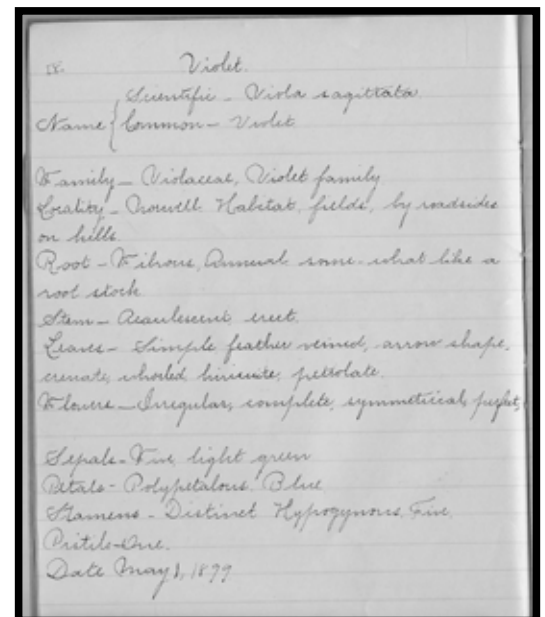 18. Violet.
Scientific - Viola sagittata
Name { Common - Violet
Family - Violaceae, Violet family
Locality - Norwell. Habitat, fields, by roadsides
on hills.
Root - Fibrous, Annual some-what like a
root stock
Stem - Acaulescent, erect.
Leaves - Simple feather veined, arrow shape,
crenate, whorled, hirsute, petrolate.
Flowers - Irregular, complete, symmetrical, perfect,
Sepals - Five, light green
Petals - Polypetalous. Blue
Stamens - Distinct Hypogynous. Five.
Pistils - One.
Date May 1, 1899